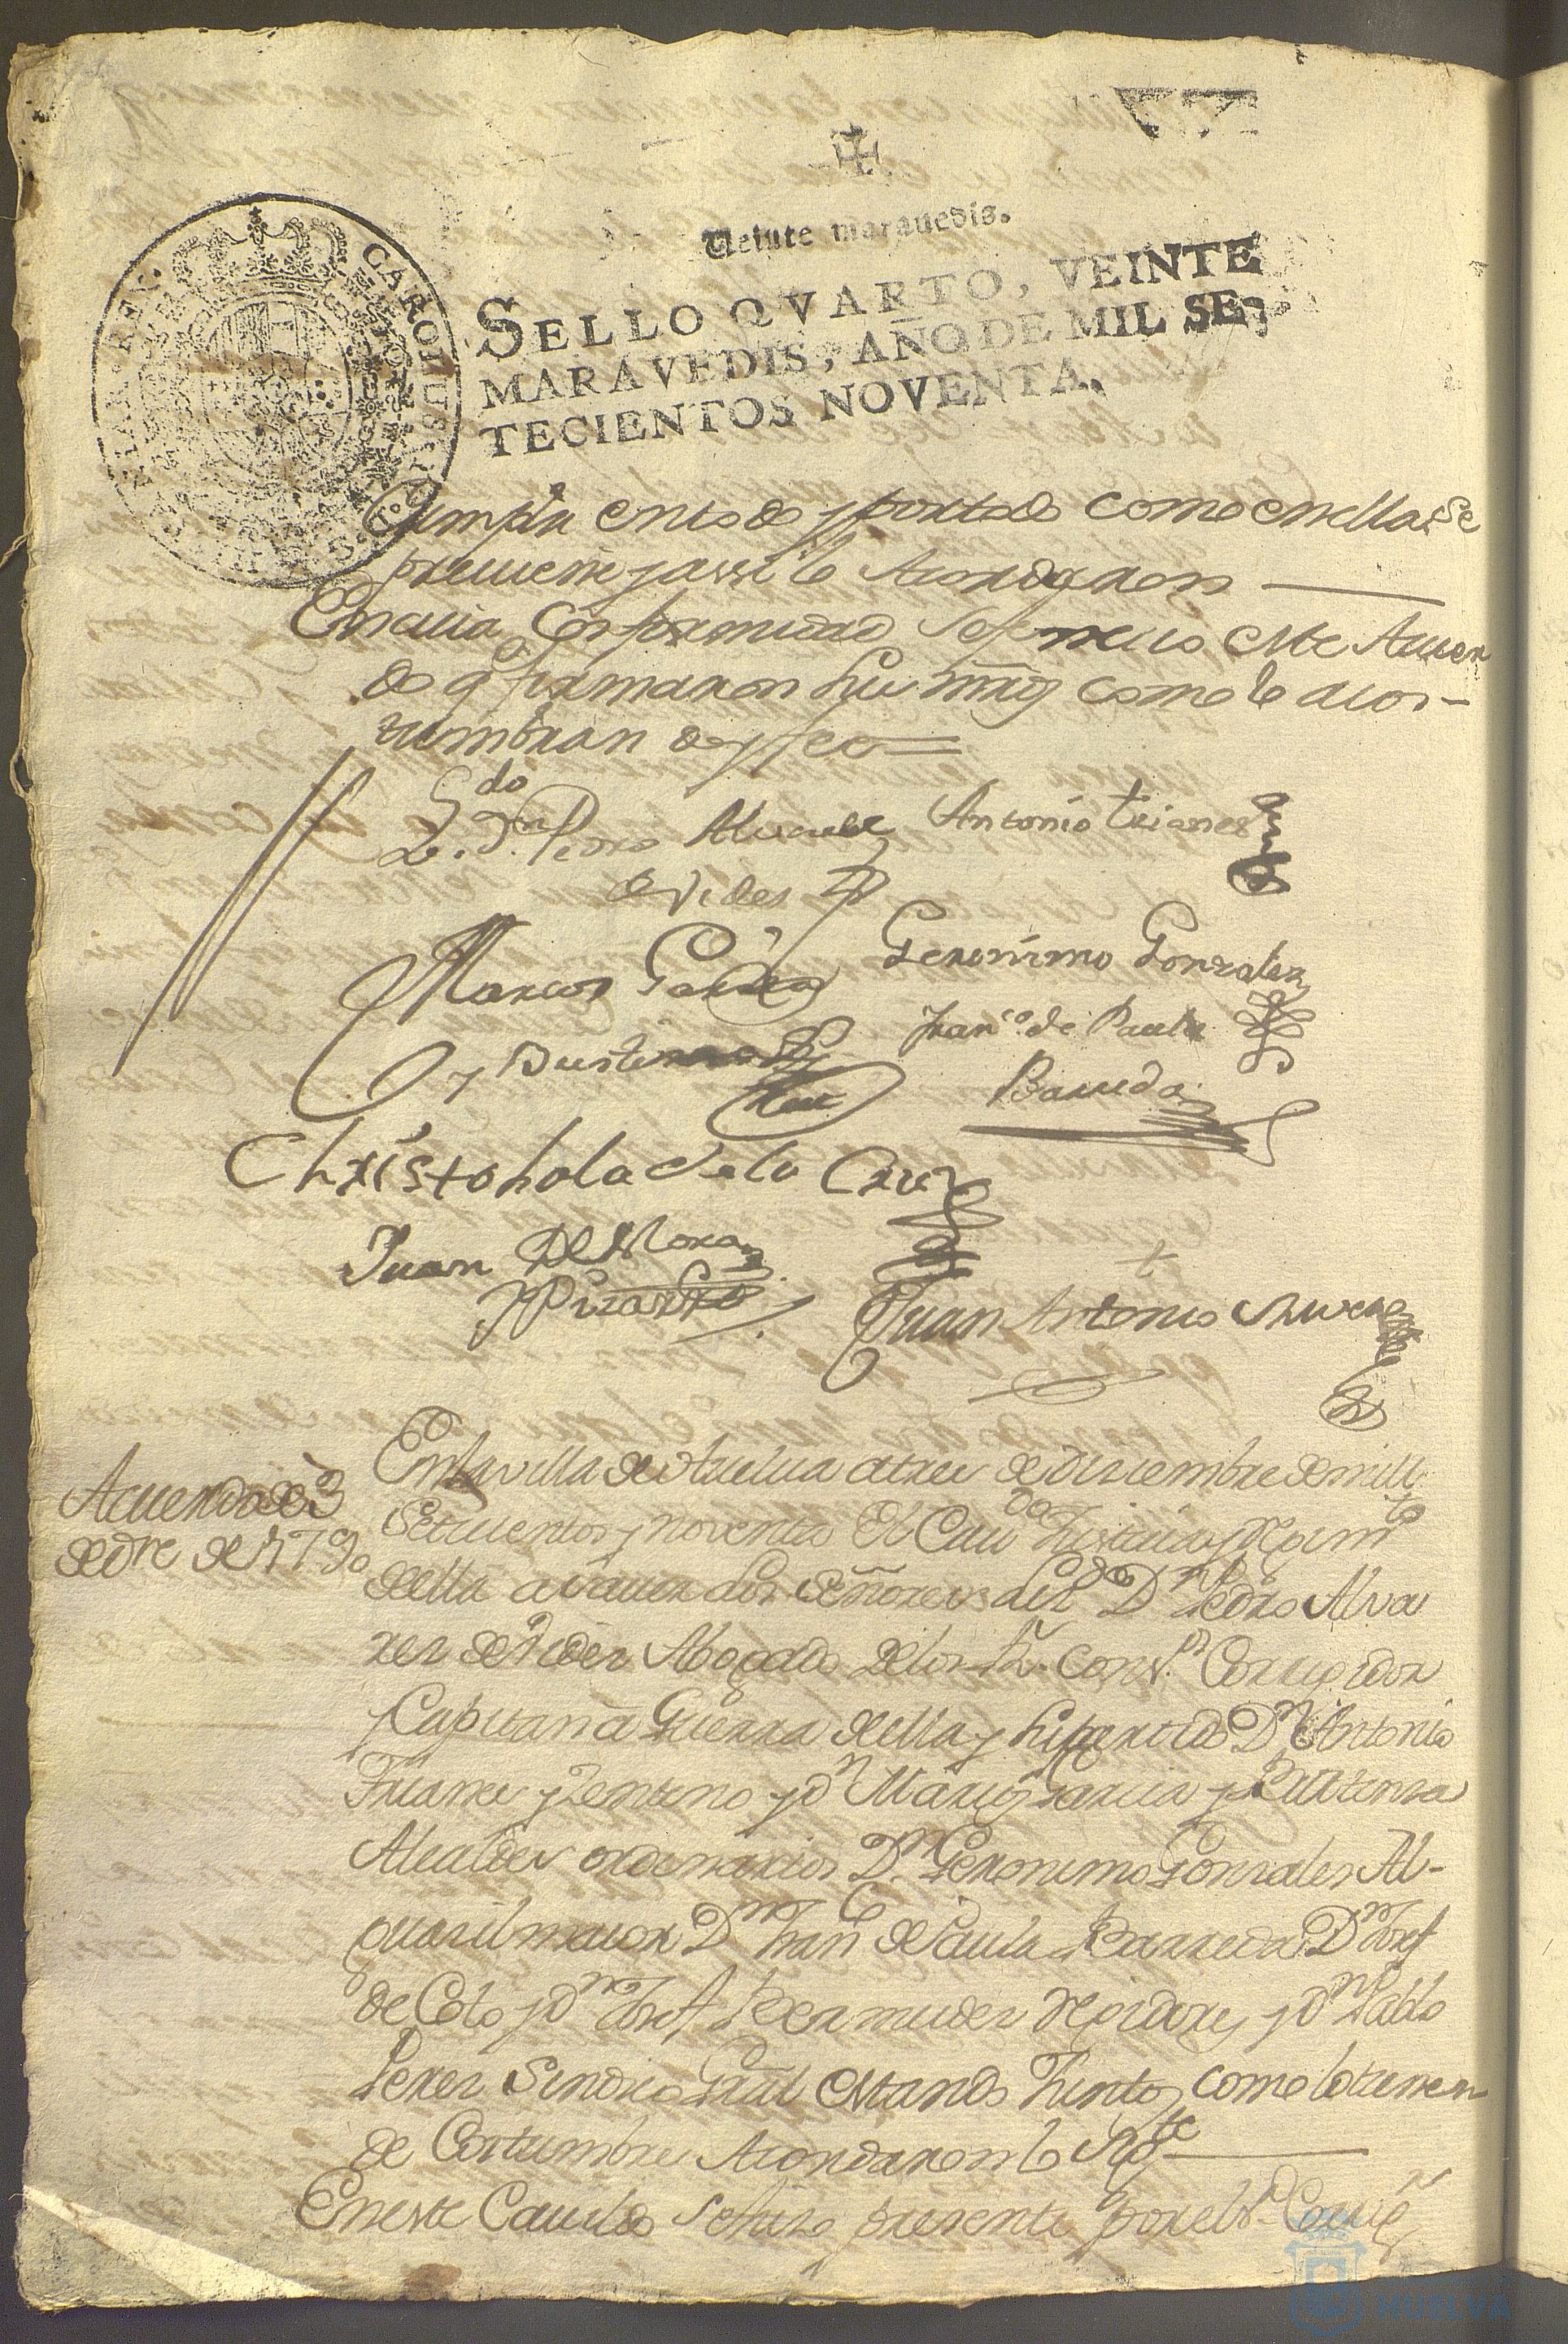 Veinte maravedis.
SELLO QVARTO, VEINTE
MARAVEDIS, AÑO DE MIL SE-
TECIENTOS NOVENTA.
CAROLUS
Cumpla en todo y portodo como en ella se
previene y assi lo Acordaron
En cuia Conformidad Se fenecio este Acuer
do q firmaron Su mrds como lo acos-
tumbran doy fee=
Lzdo Dn Pedro Alvarez Antonio Trianes
de Vides
Marcos Garcia Geronimo Gonzalez
y Bustenza Franco de Paula
Barreda
Christobola de la Cruz
Juan De Mora
y Pizarro
Juan Antonio
Acuerdo de 3
de Dre de 1790
En la villa de Huelua a tres de Diziembre de mill
Setecientos y noventa El Cavdo Justicia y Regimto
della a saver los Señores Lizdo Dn Pedro Alva
rez de Vides Abogado de los Rs. Cons.s Corregidor
y Capitan a Guerra della y su partido Dn Antonio
Trianes y Zenteno y Dn Marcos Garcia y Bustenza
Alcaldes ordinarios Dn Geronimo Gonzales Al-
guazil maior Dn Franco de Paula Barreda Dn Josef
de Coto y Dn Josef Bermudez Regidores y Dn Pablo
Perez Sindico Gral estando Juntos como lo tienen
de Costumbre Acordaron lo Sigte
En este Cavildo Se hizo presente por el Sr Correg.r
HUELVA